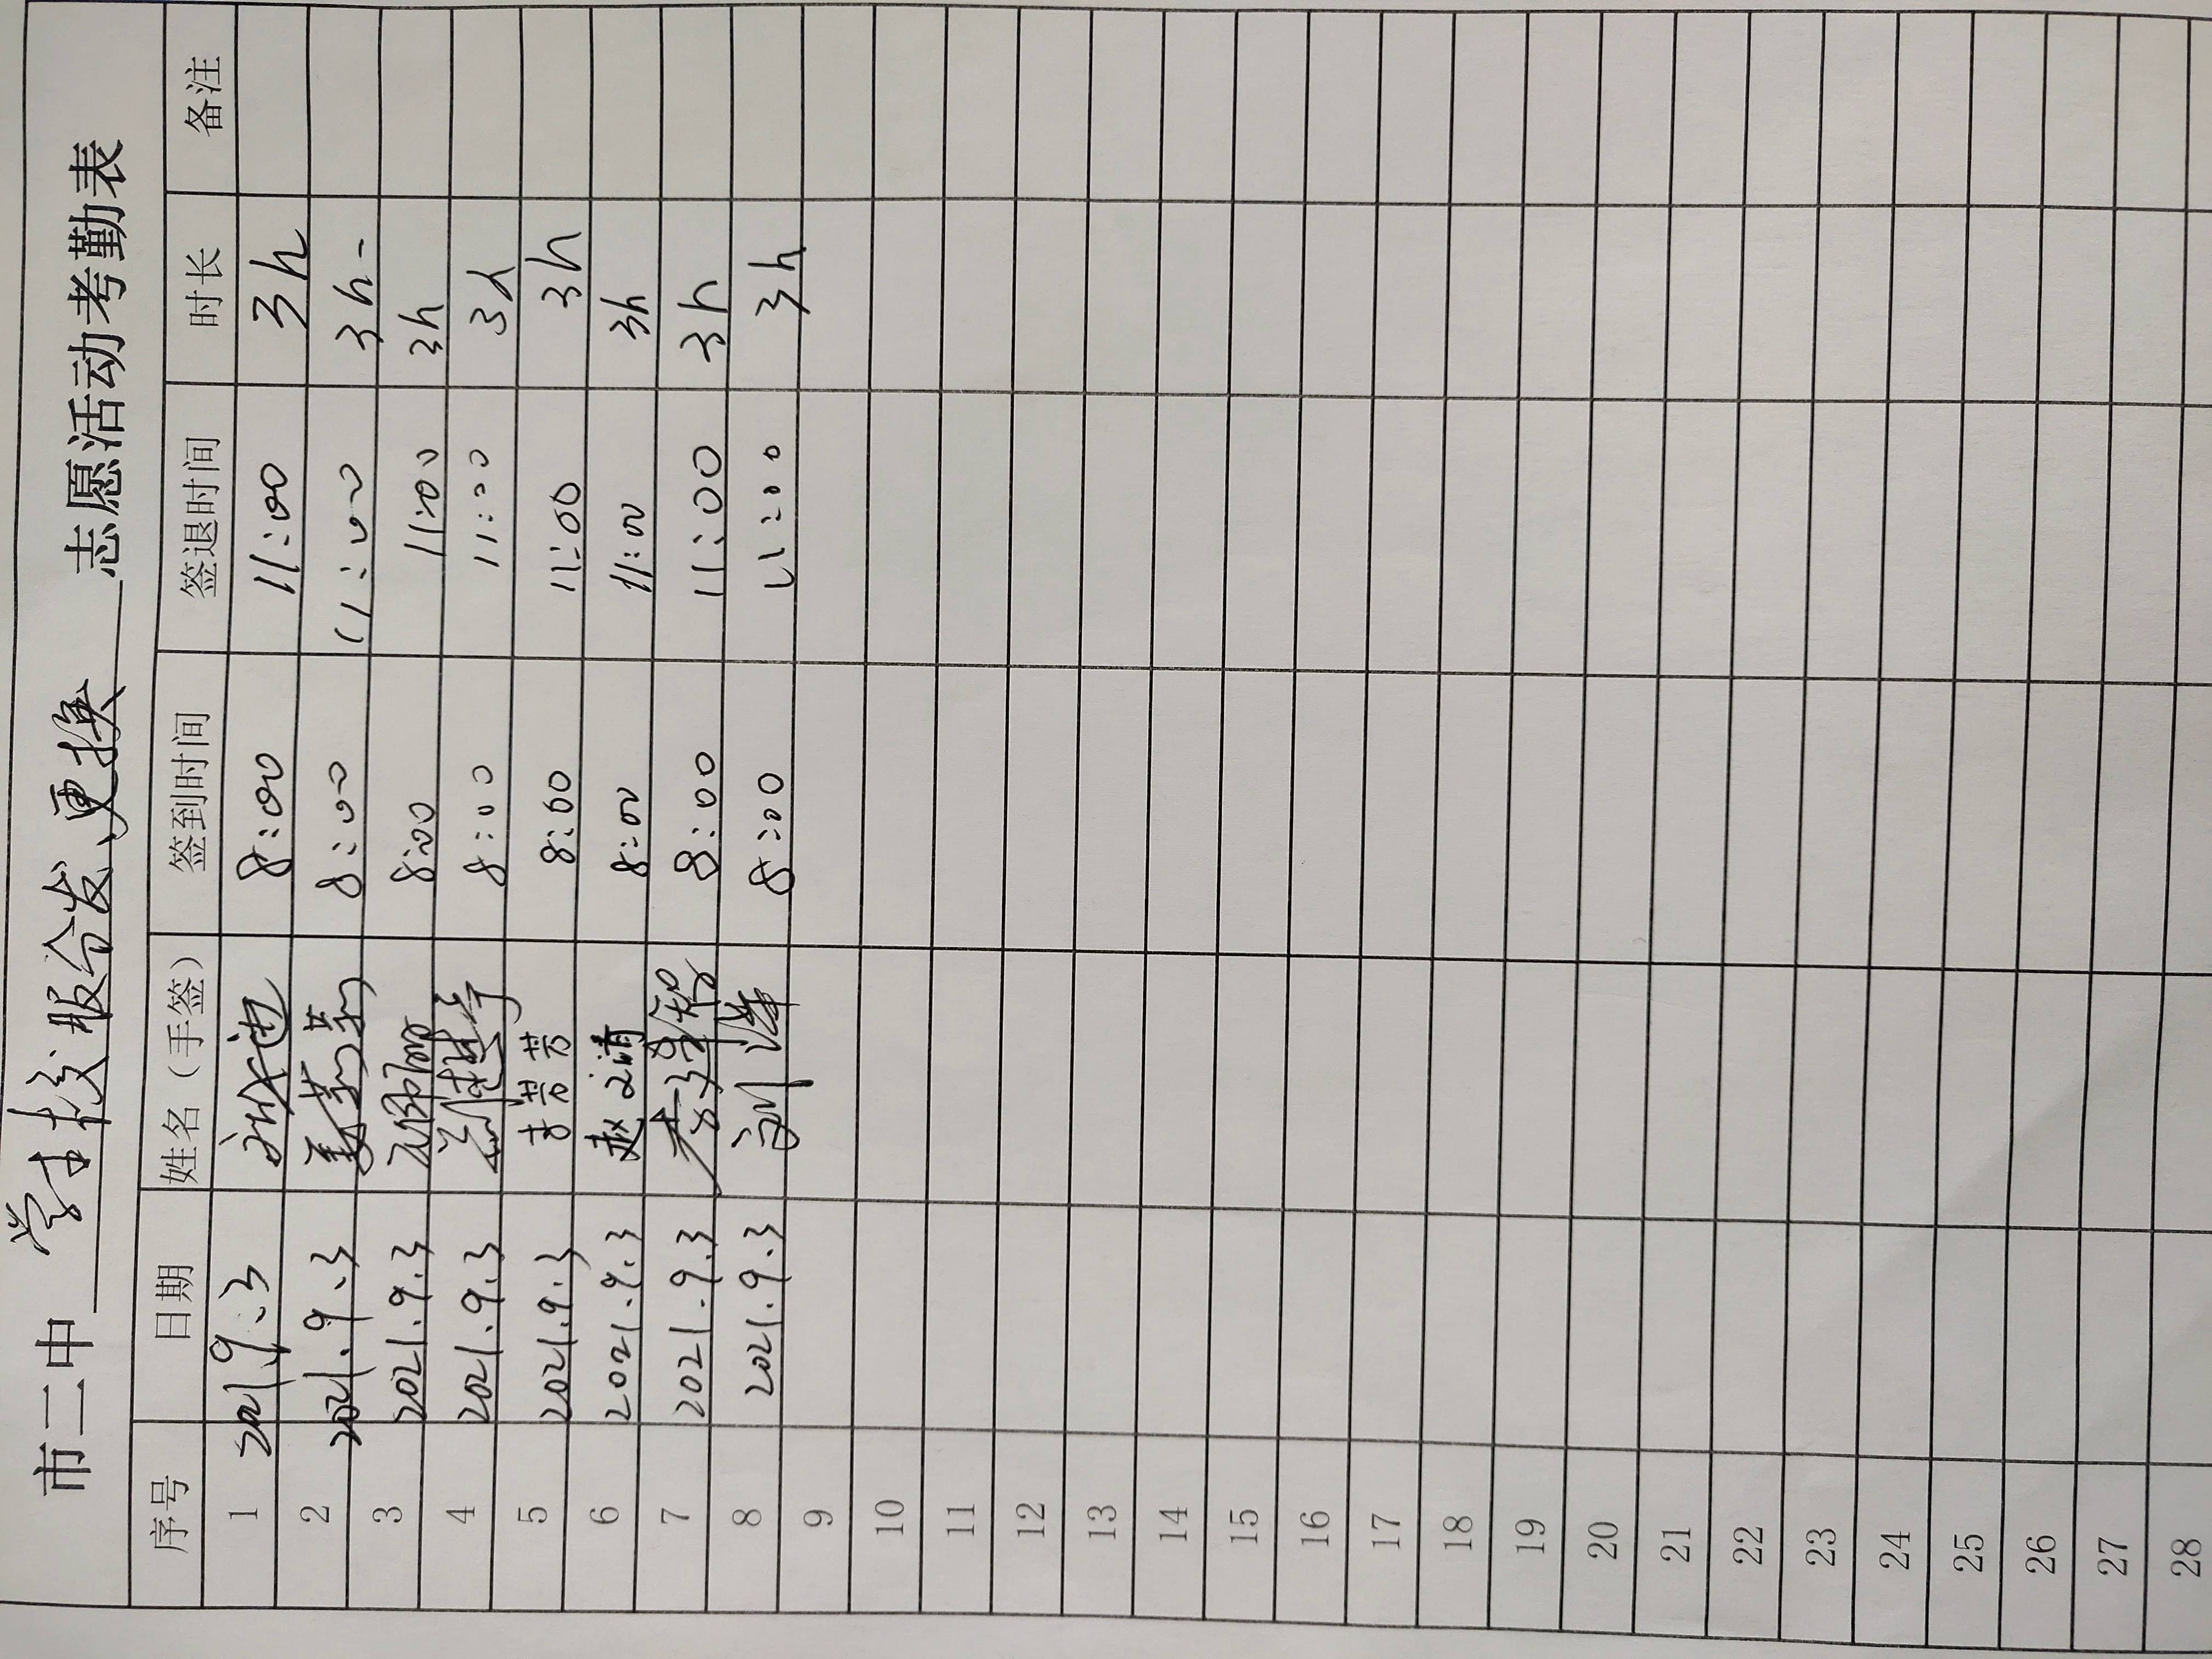 市二中 学生校服分发、更换 志愿活动考勤表
序号 日期 姓名（手签） 签到时间 签退时间 时长 备注
1 2021.9.3 8:00 11:00 3h
2 2021.9.3 姜莉莉 8:00 11:00 3h
3 2021.9.3 8:00 11:00 3h
4 2021.9.3 8:00 11:00 3h
5 2021.9.3 8:00 11:00 3h
6 2021.9.3 赵文靖 8:00 11:00 3h
7 2021.9.3 8:00 11:00 3h
8 2021.9.3 8:00 11:00 3h
9
10
11
12
13
14
15
16
17
18
19
20
21
22
23
24
25
26
27
28